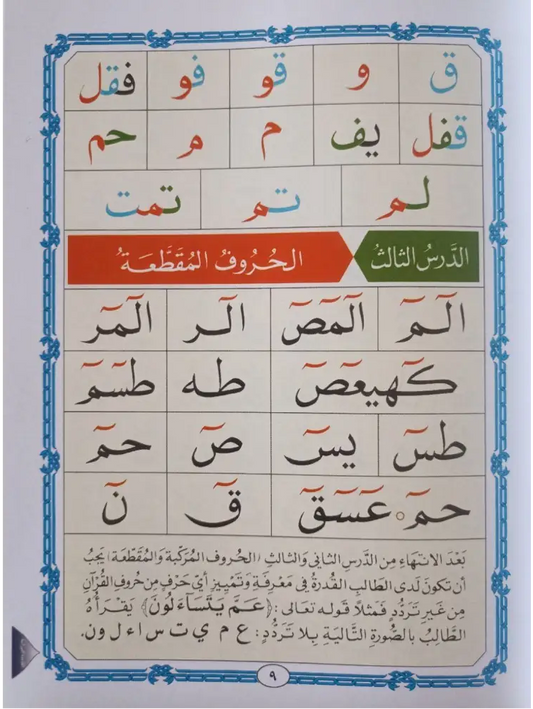 ق و قو فو فقل
قفل يف م م حم
لم تم تمت
الدَّرسُ الثالثُ الحُرُوفُ المُقَطَّعَةُ
الٓمٓ الٓمٓصٓ الٓر الٓمٓر
كٓهيعٓصٓ طه طسٓمٓ
طسٓ يسٓ صٓ حمٓ
حمٓ ۝ عٓسٓقٓ قٓ نٓ
بَعْدَ الانْتِهَاءِ مِن الدَّرْسِ الثاني وَالثالثِ (الحروف المُرَكَّبَة وَالمُقَطَّعَة) يجبُ
أن تكونَ لدى الطالبِ القُدرةُ في مَعْرِفَةِ وَتَمْيِيزِ أيِّ حَرْفٍ مِن حُروفِ القُرْآنِ
مِن غَيرِ تَرَدُّدٍ فَمَثلاً قوله تعالى :﴿عَمَّ يَتَسَآءَلُونَ﴾ يَقْرَأهُ
الطَّالِبُ بالصُّورَةِ التَّالِيَةِ بِلَا تَرَدُّدٍ: ع م ي ت س ا ء ل و ن.
٩